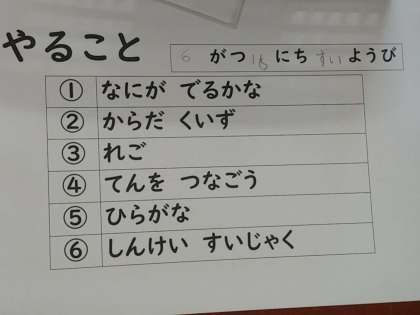 やること
6 がつ 16 にち すい ようび
① なにが でるかな
② からだ くいず
③ れご
④ てんを つなごう
⑤ ひらがな
⑥ しんけい すいじゃく